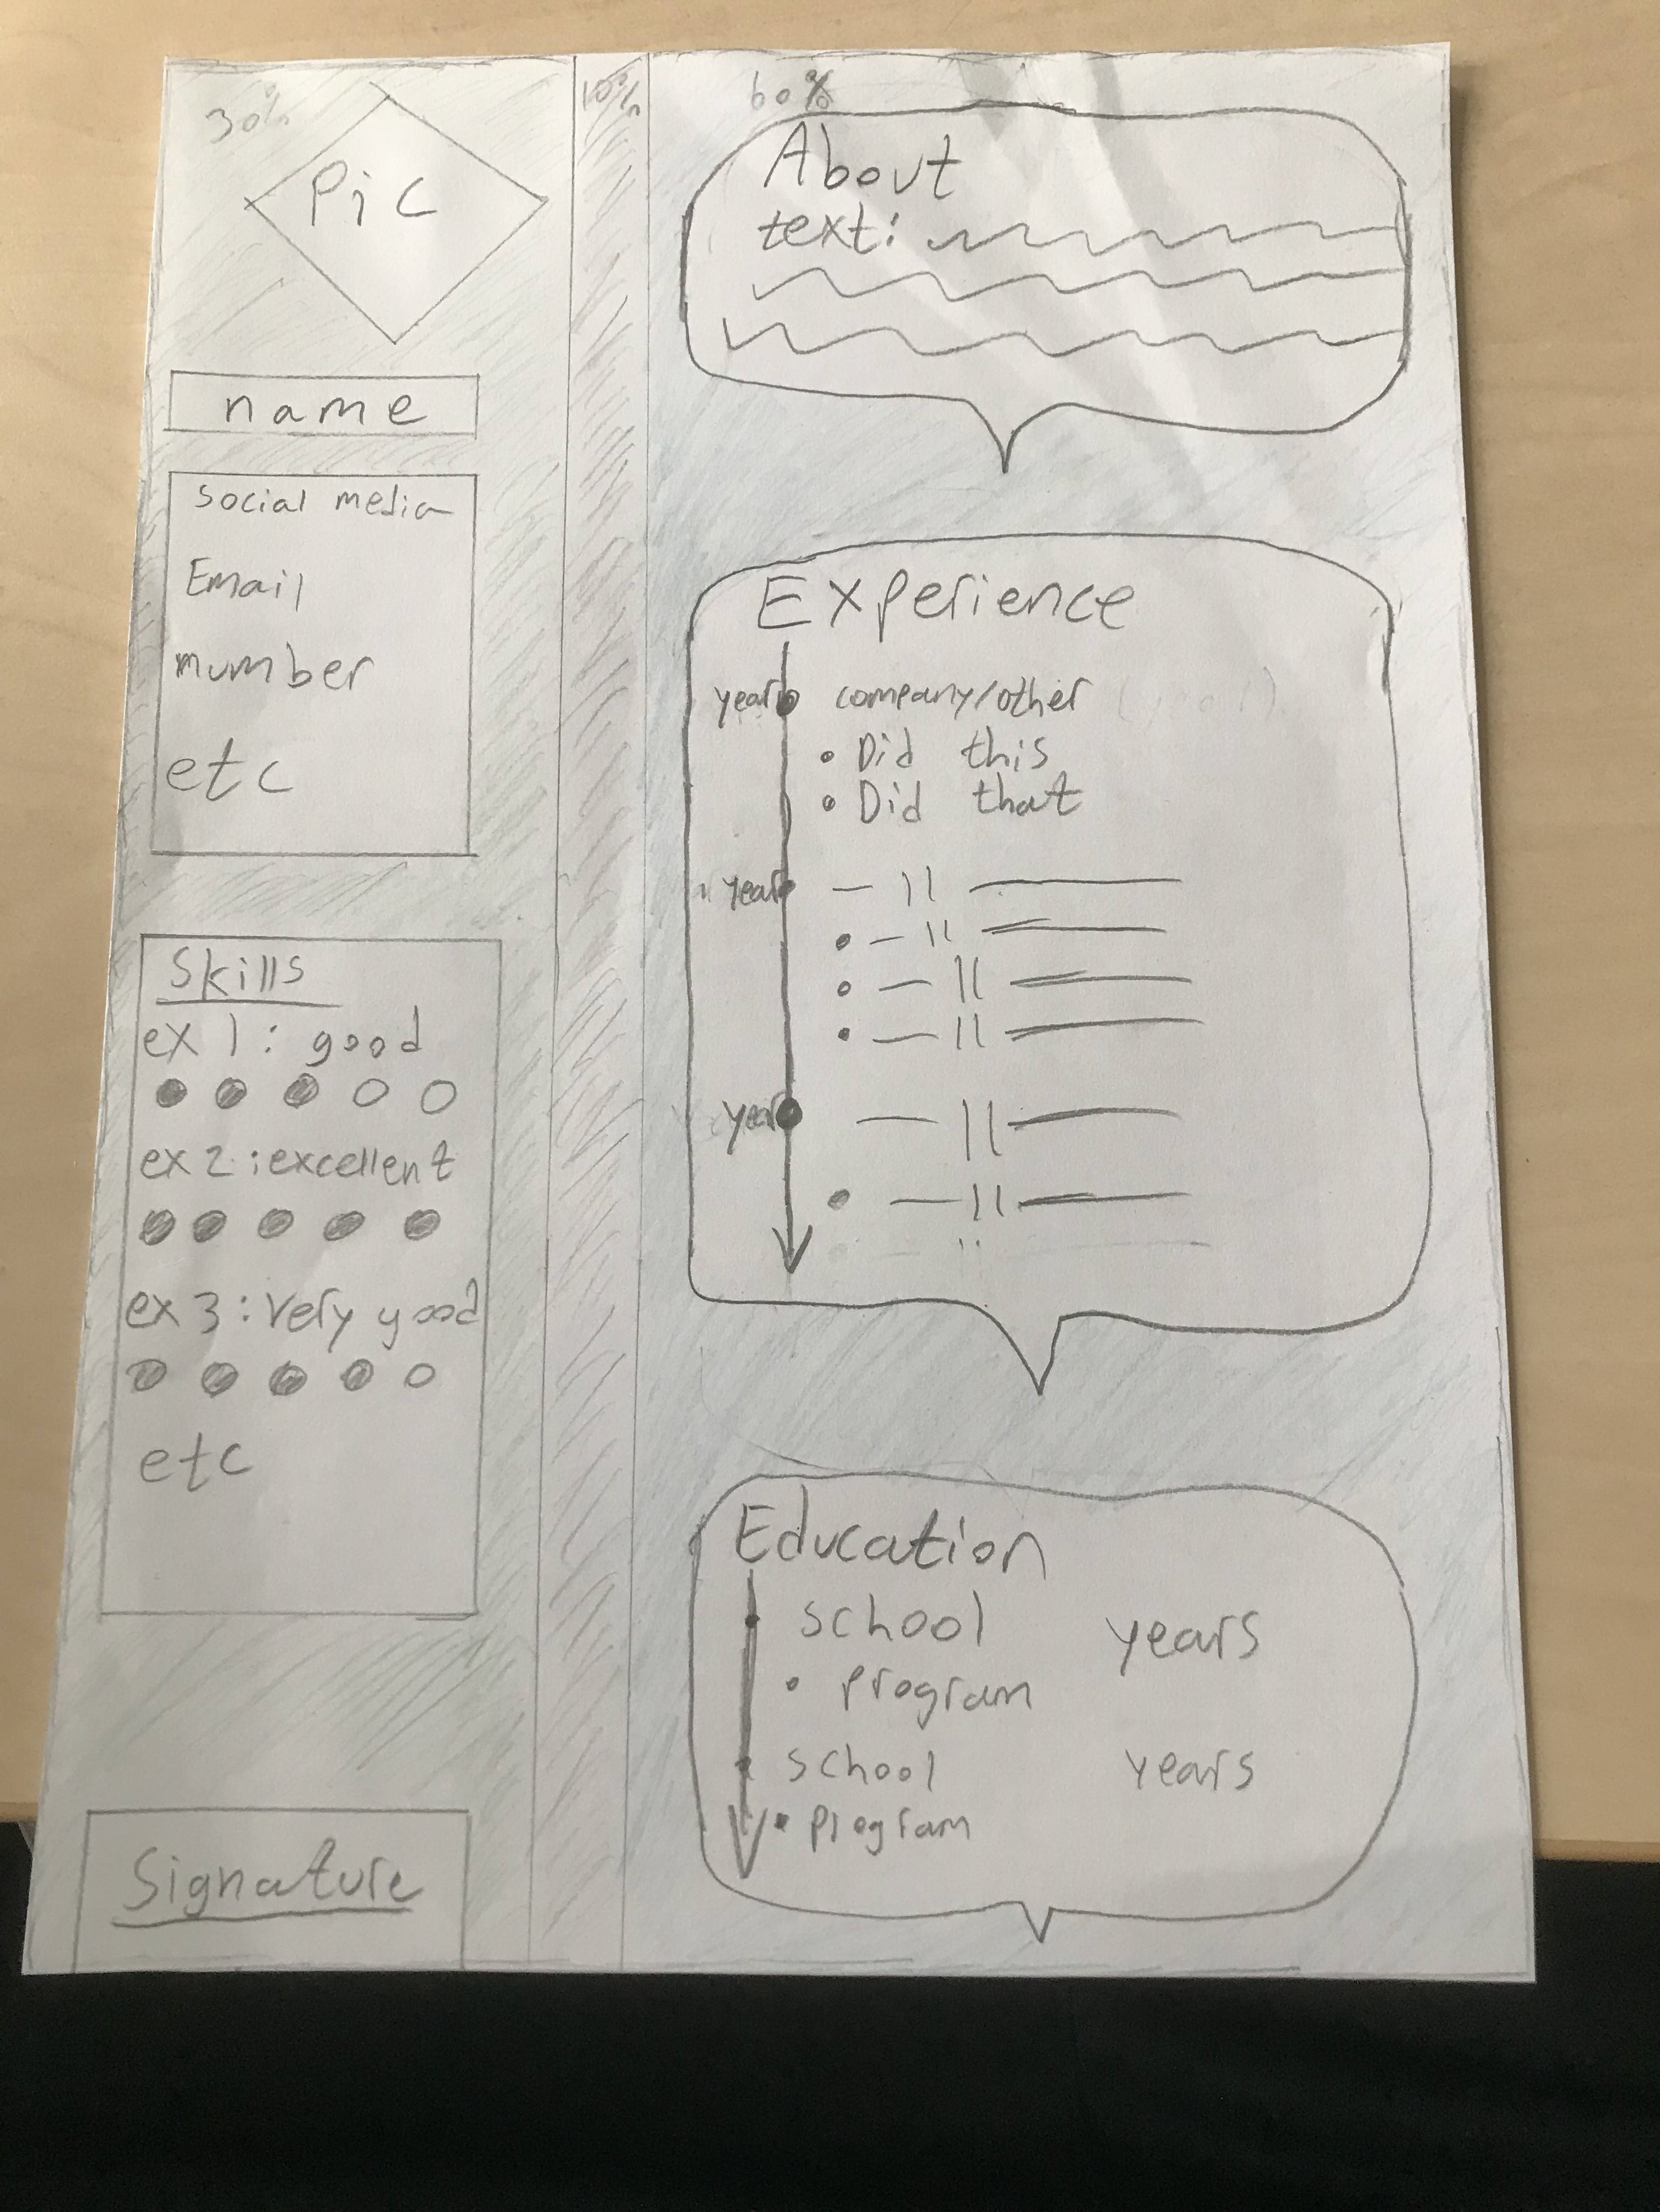 30%
10%
60%
Pic
name
social media
Email
number
etc
Skills
ex 1: good
ex 2: excellent
ex 3: very good
etc
Signature
About
text:
Experience
year
company/other
• Did this
• Did that
year
year
Education
school years
• program
school years
• program